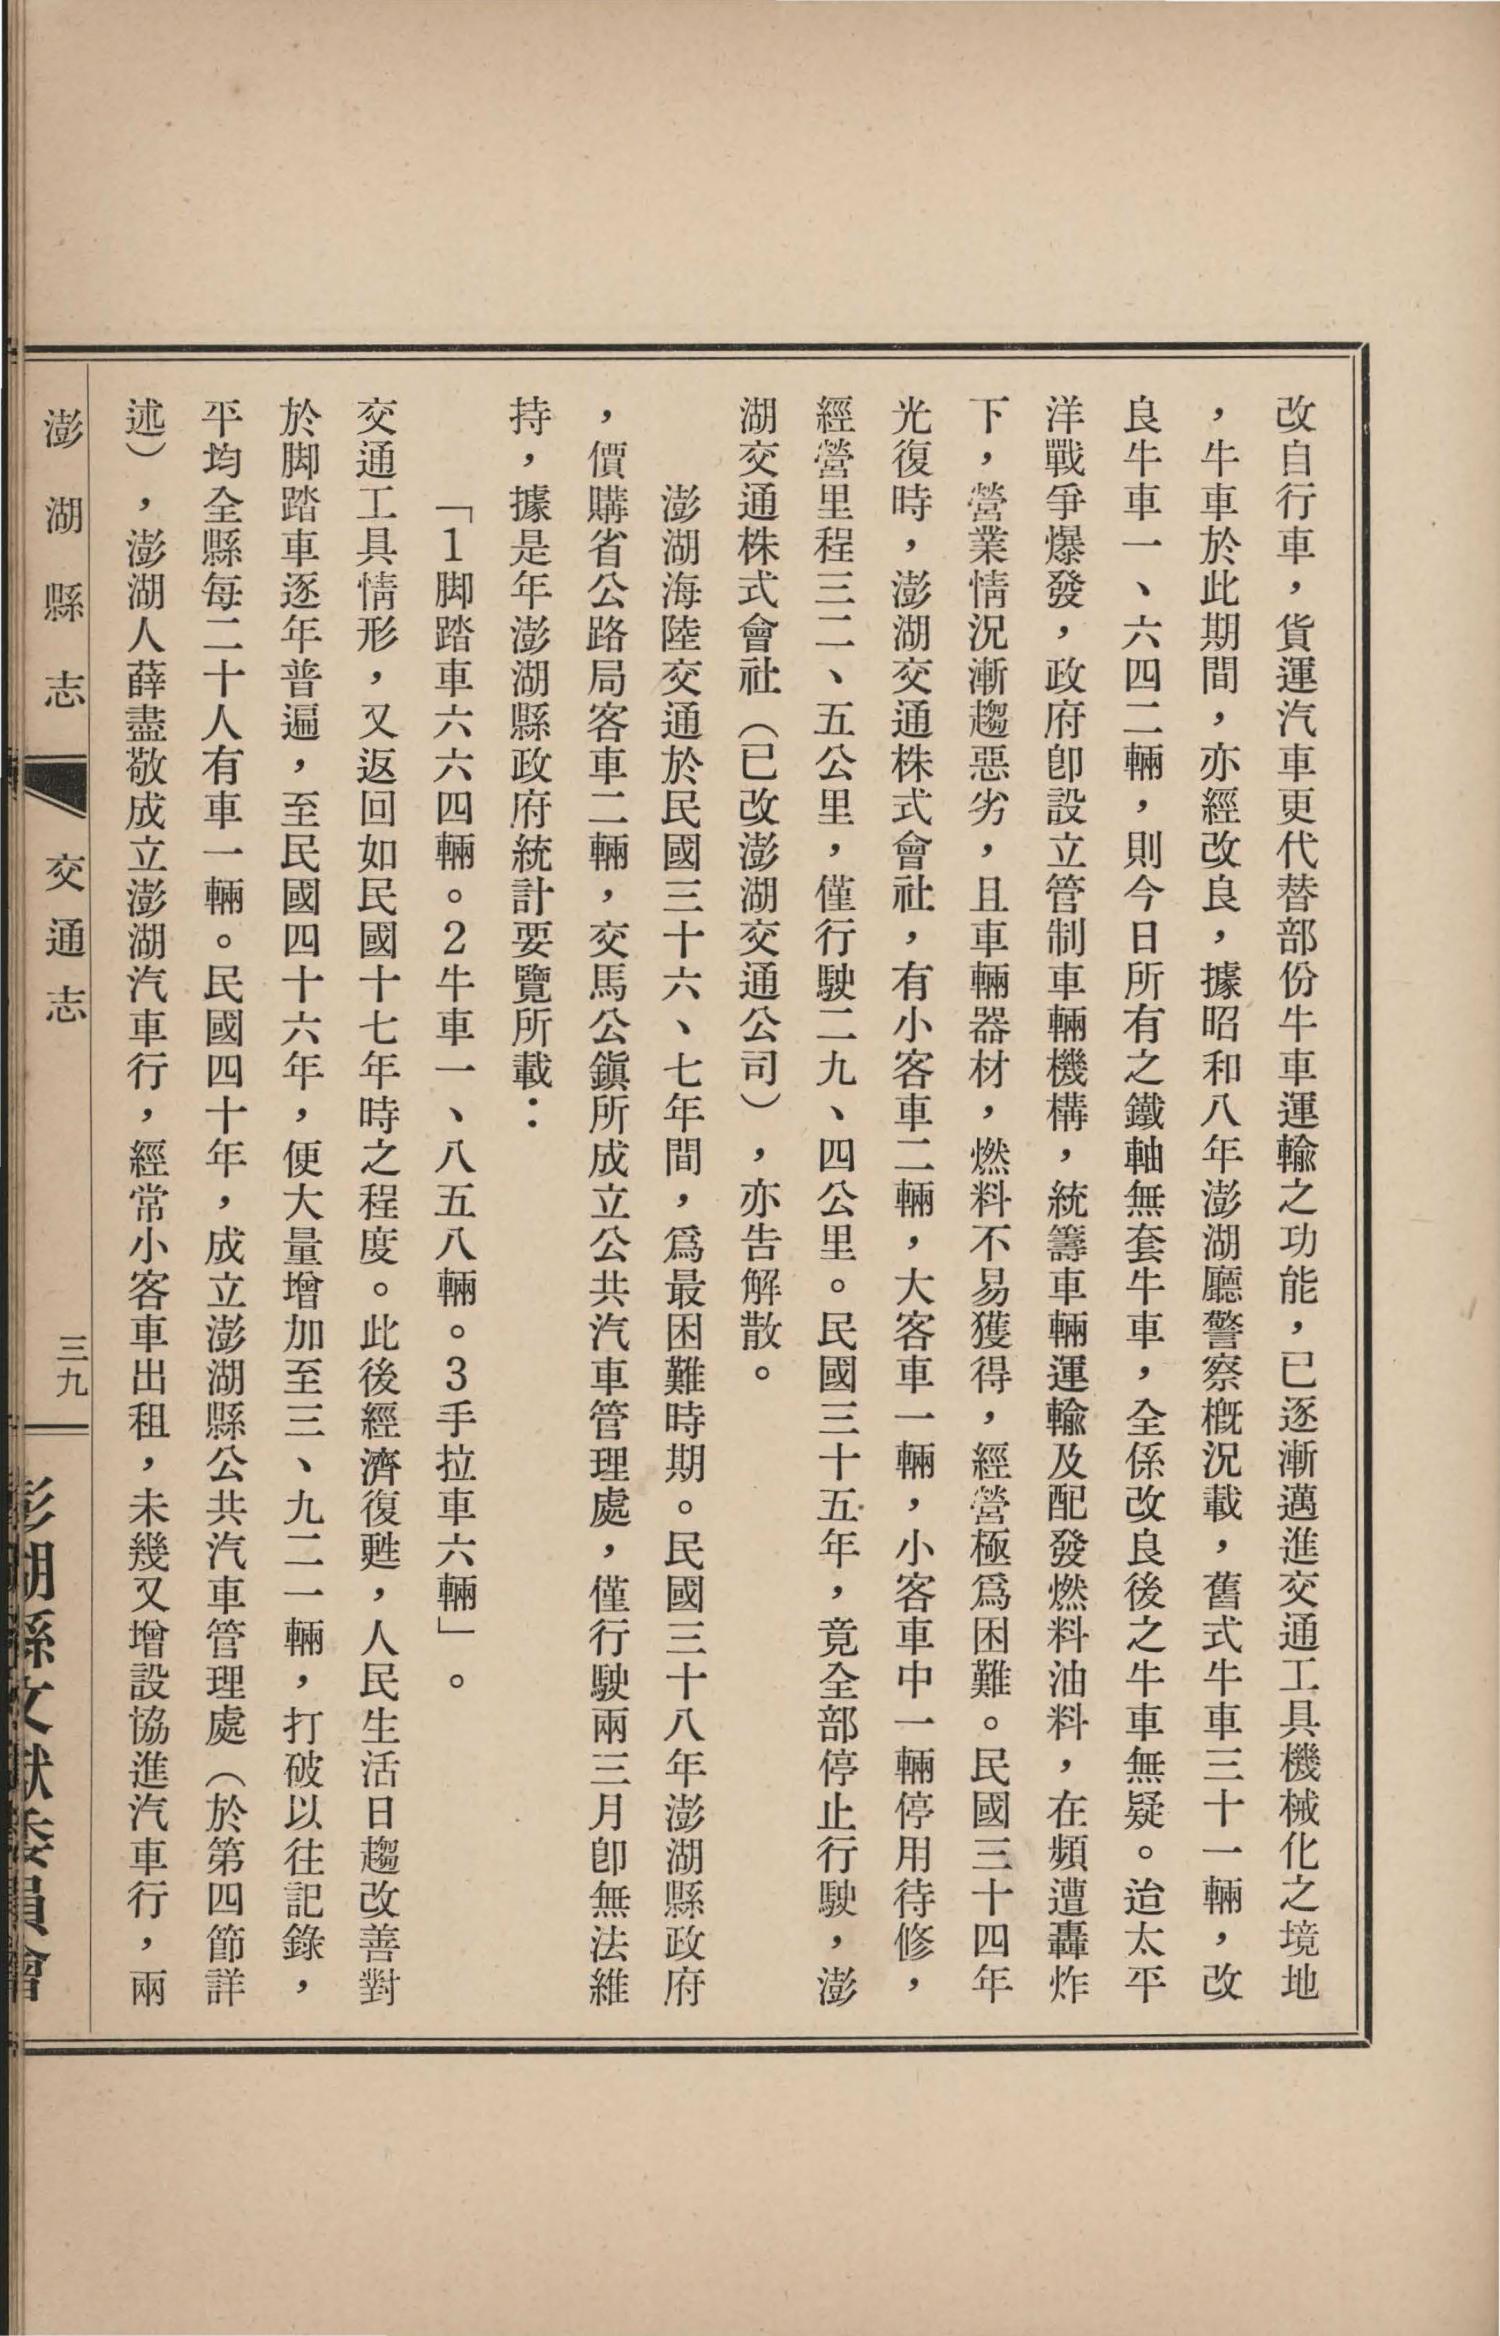 改自行車，貨運汽車更代替部份牛車運輸之功能，已逐漸邁進交通工具機械化之境地
，牛車於此期間，亦經改良，據昭和八年澎湖廳警察槪況載，舊式牛車三十一輛，改
良牛車一、六四二輛，則今日所有之鐵軸無套牛車，全係改良後之牛車無疑。迨太平
洋戰爭爆發，政府卽設立管制車輛機構，統籌車輛運輸及配發燃料油料，在頻遭轟炸
下，營業情況漸趨惡劣，且車輛器材，燃料不易獲得，經營極爲困難。民國三十四年
光復時，澎湖交通株式會社，有小客車二輛，大客車一輛，小客車中一輛停用待修，
經營里程三二、五公里，僅行駛二九、四公里。民國三十五年，竟全部停止行駛，澎
湖交通株式會社（已改澎湖交通公司），亦告解散。
澎湖海陸交通於民國三十六、七年間，爲最困難時期。民國三十八年澎湖縣政府
，價購省公路局客車二輛，交馬公鎭所成立公共汽車管理處，僅行駛兩三月卽無法維
持，據是年澎湖縣政府統計要覽所載：
「1脚踏車六六四輛。2牛車一、八五八輛。3手拉車六輛」。
交通工具情形，又返回如民國十七年時之程度。此後經濟復甦，人民生活日趨改善對
於脚踏車逐年普遍，至民國四十六年，便大量增加至三、九二一輛，打破以往記錄，
平均全縣每二十人有車一輛。民國四十年，成立澎湖縣公共汽車管理處（於第四節詳
述），澎湖人薛盡敬成立澎湖汽車行，經常小客車出租，未幾又增設協進汽車行，兩
澎湖縣志 交通志 三九 澎湖縣文獻委員會